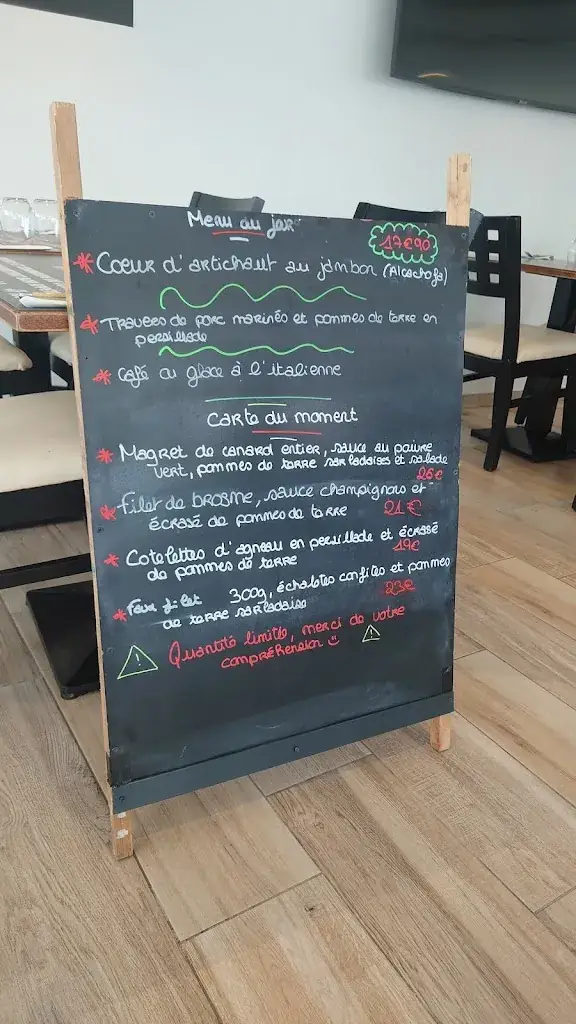 Menu du jour
17€90
* Coeur d'artichaut au jambon (Alcachofa)
* Travers de porc marinés et pommes de terre en
persillade
* Café ou glace à l'italienne
Carte du moment
* Magret de canard entier, sauce au poivre
vert, pommes de terre sarladaises et salade
26€
* Filet de brosme, sauce champignons et
écrasé de pommes de terre 21€
* Cotelettes d'agneau en persillade et écrasé
de pommes de terre 19€
* Faux filet 300g, échalotes confites et pommes
de terre sarladaise 23€
Quantité limitée, merci de votre
compréhension